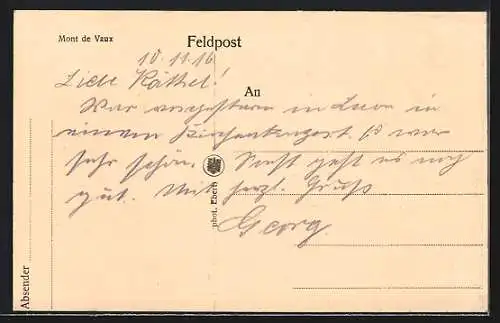 Mont de Vaux
Feldpost
10.11.16
Liebe Käthel!
An
War vorgestern in Laon in
einem Kirchenkonzert. Es war
sehr schön. Sonst geht es mir
gut. Mit herzl. Gruß
Georg.
phot. Eberth
Absender